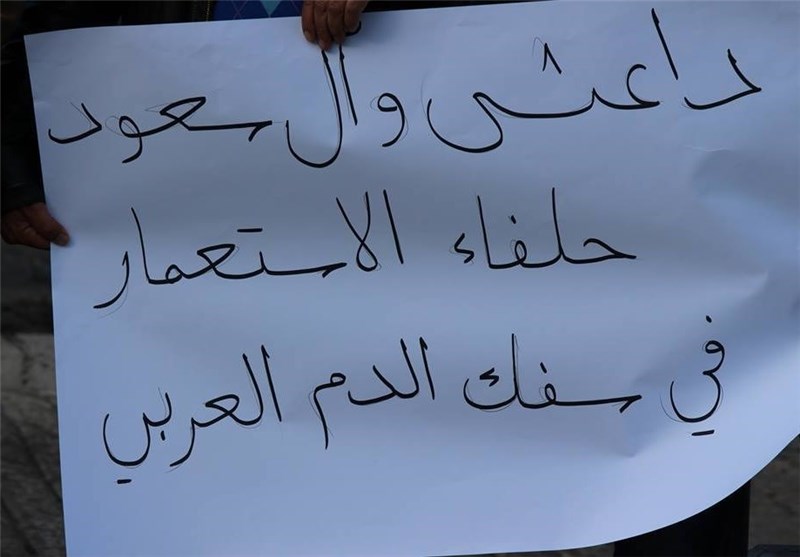 داعش وآل سعود
حلفاء الاستعمار
في سفك الدم العربي